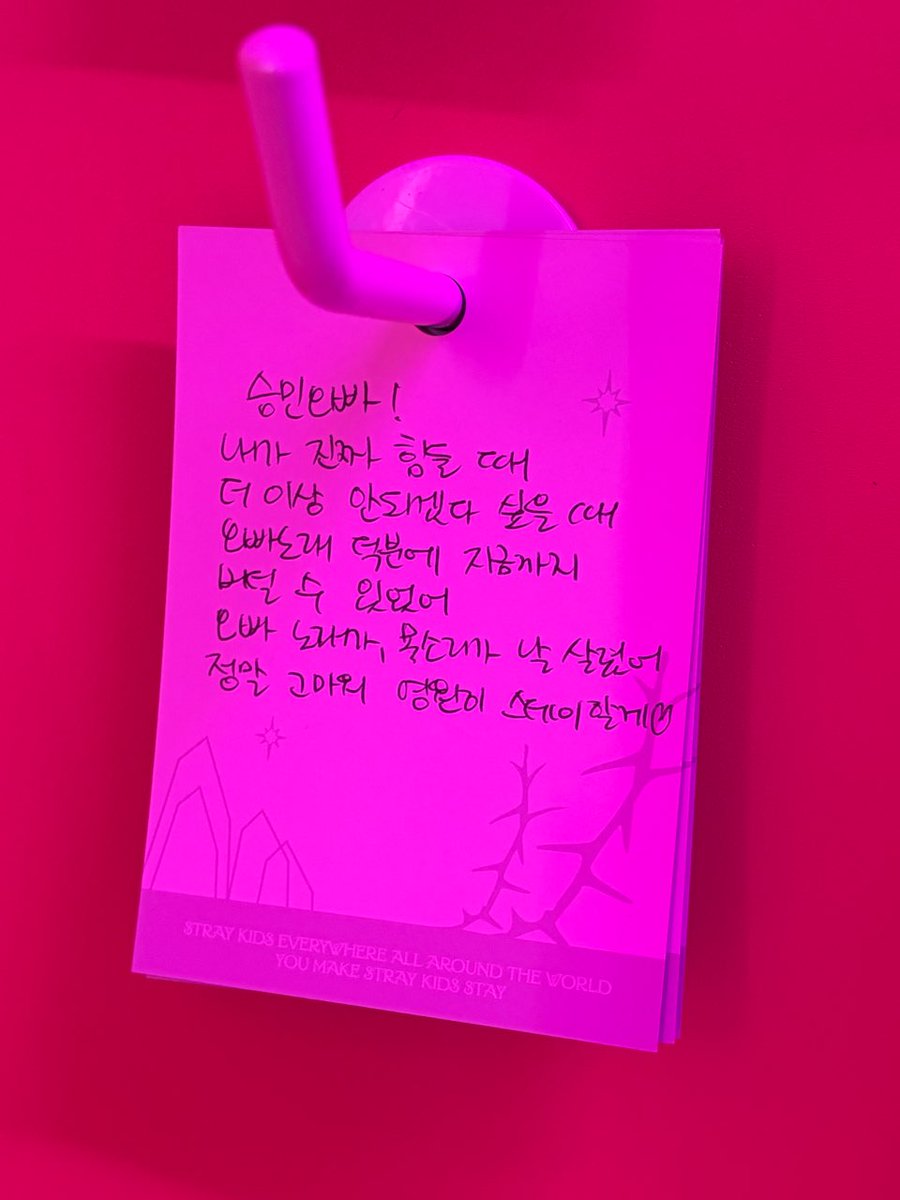 승민오빠!
내가 진짜 힘들 때
더 이상 안되겠다 싶을 때
오빠노래 덕분에 지금까지
버틸 수 있었어
오빠 노래가, 목소리가 날 살렸어
정말 고마워 영원히 스테이할게♡
STRAY KIDS EVERYWHERE ALL AROUND THE WORLD
YOU MAKE STRAY KIDS STAY